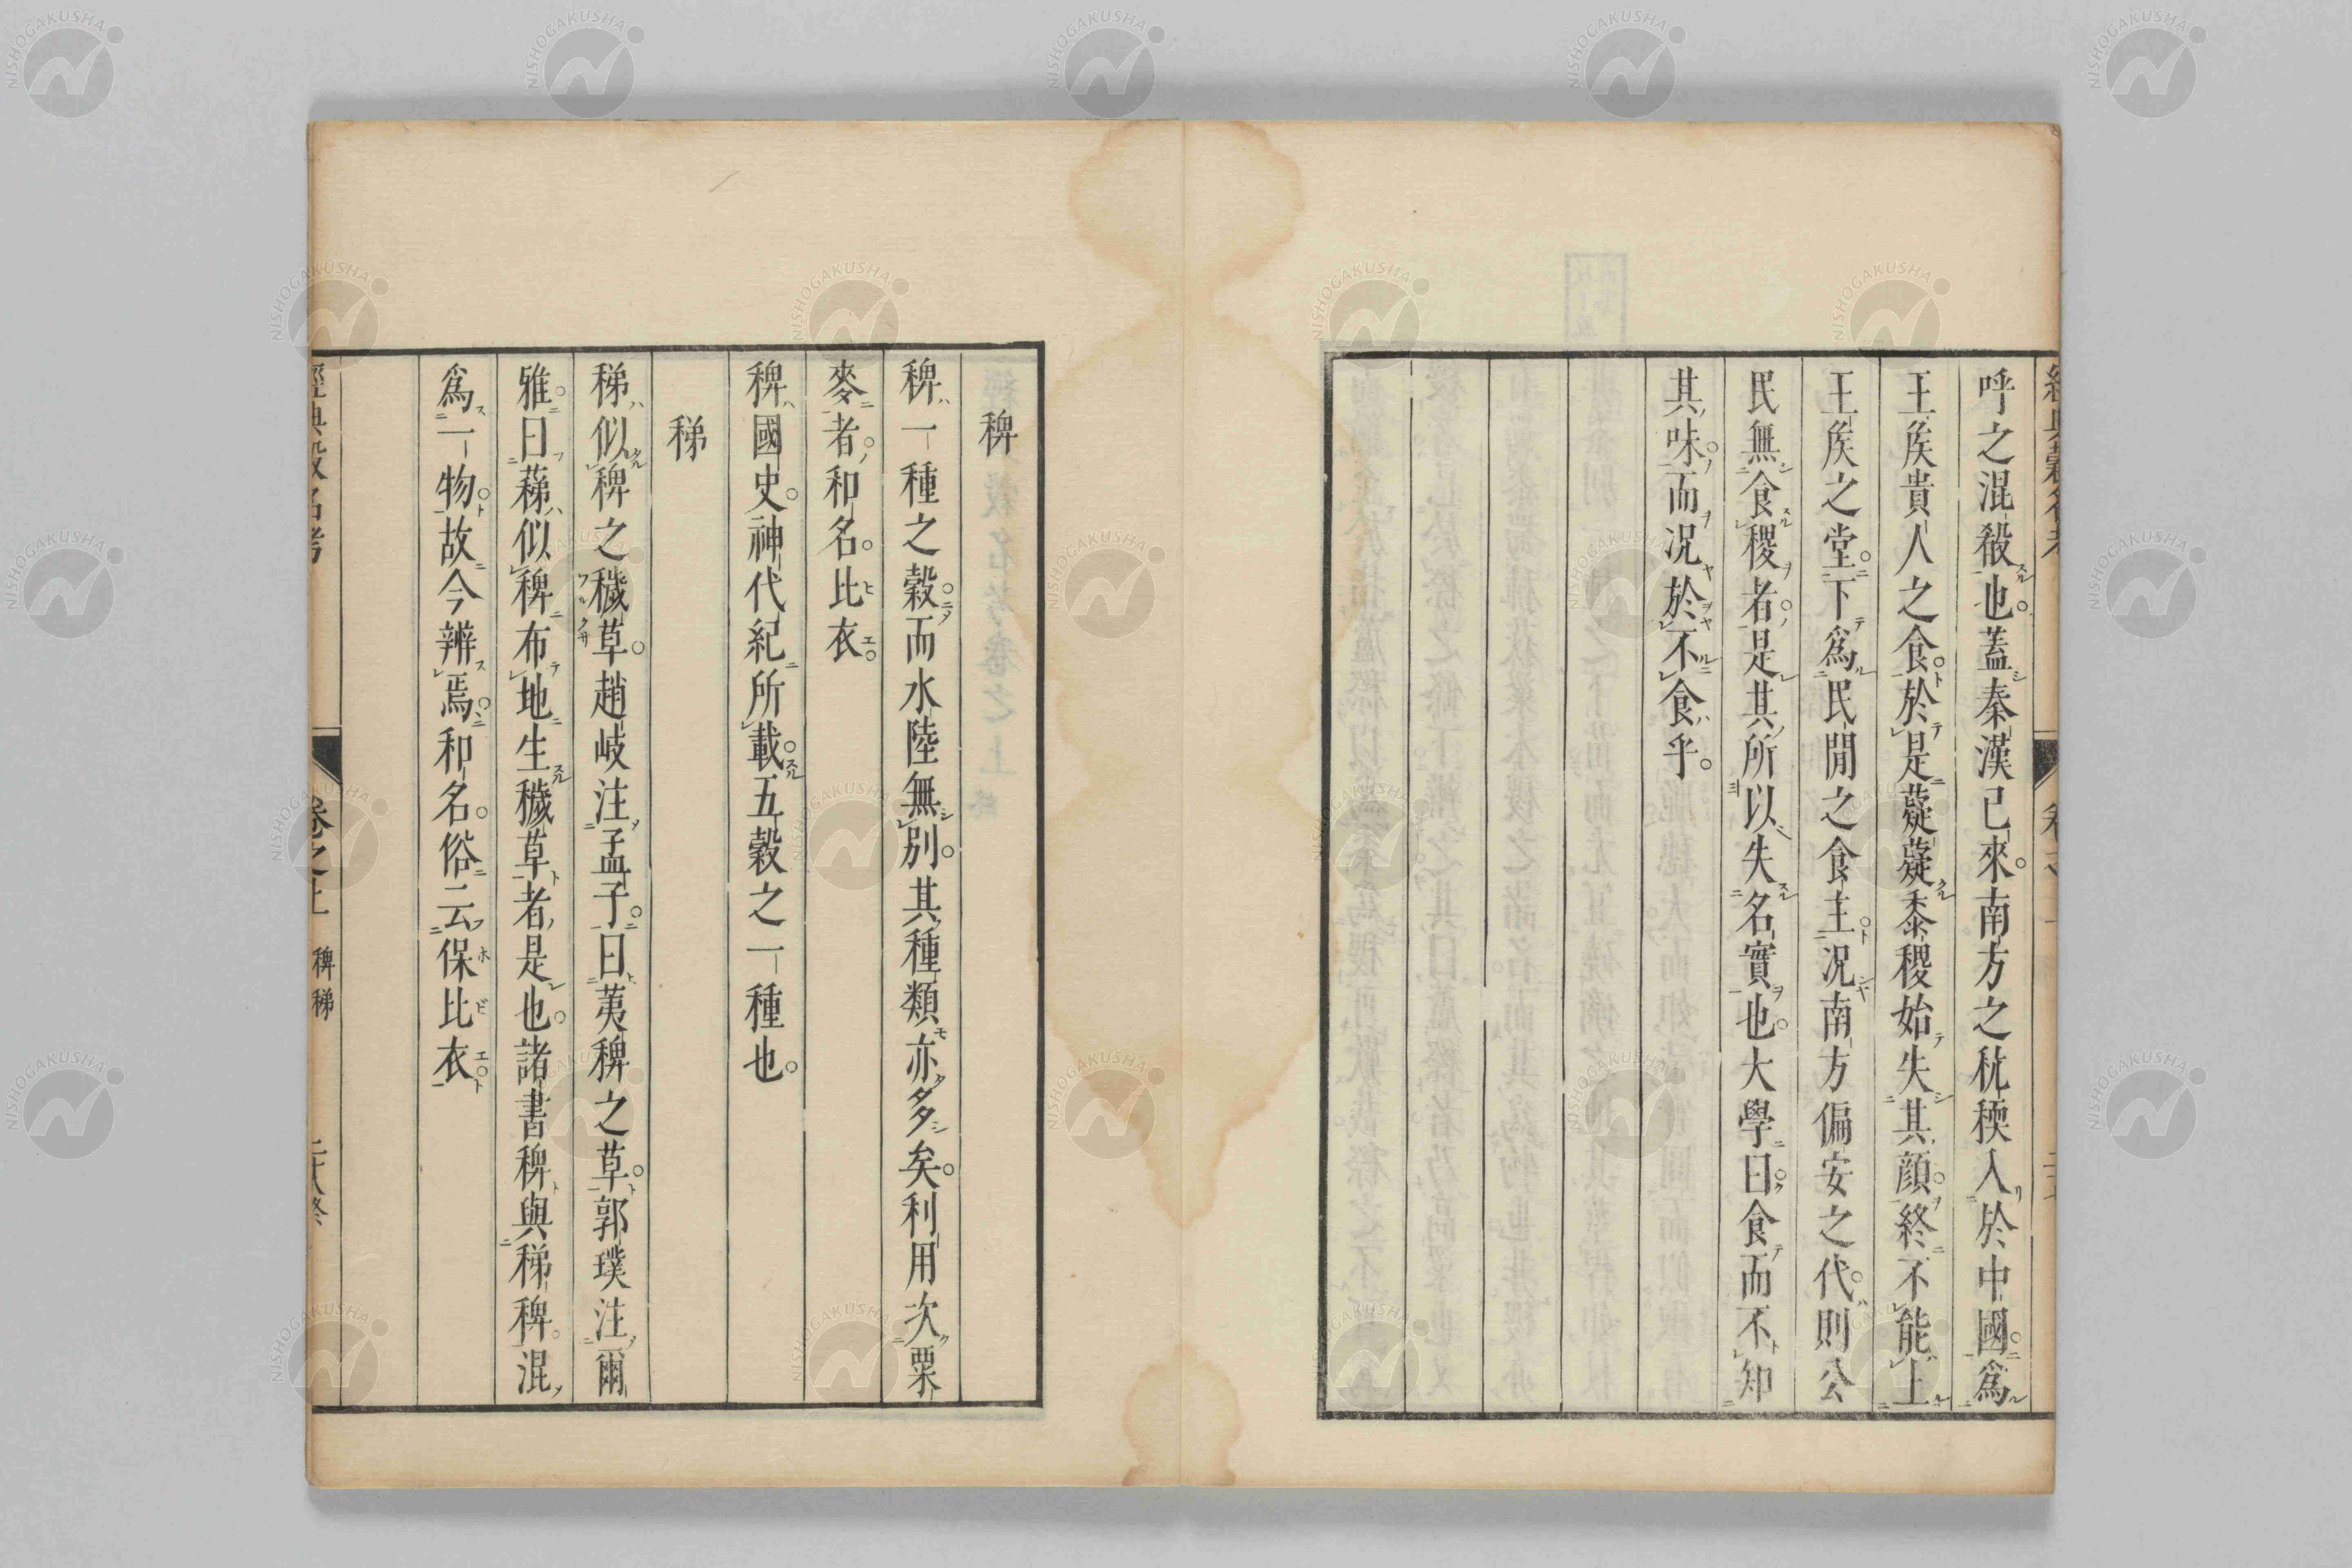 呼之混殽也。蓋秦漢已來。南方之秔稉入於中國。爲
王侯貴人之食。於是薿薿黍稷始失其顔。終不能上
王侯之堂。下爲民間之食主。況南方偏安之代。則公
民無食稷者。是其所以失名實也。大學曰。食而不知
其味。而況於不食乎。
稗
稗一種之穀。而水陸無別。其種類亦多矣。利用次粟
麥者。和名。比衣。
稗國史。神代紀所載。五穀之一種也。
稊
稊似稗之穢草。趙岐注孟子。曰荑稗之草。郭璞注爾
雅。曰蕛似稗布地生穢草者是也。諸書稗與稊稗。混
爲一物。故今辨焉。和名。俗云保比衣。
卷之上 稗稊
NISHOGAKUSHA